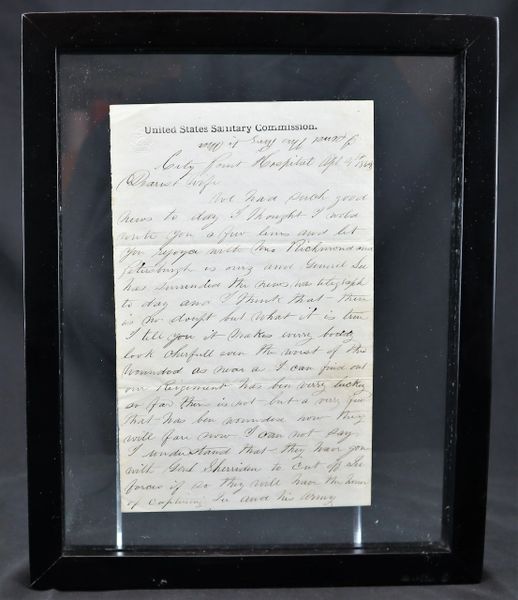 United States Sanitary Commission.
City Point Hospital Apl 4th
Dearest wife
We had such good
news to day I thought I wold
write you a few lines and let
you rejoyce with me Richmond and
Petersburgh is ours and General Lee
has surrended the news was telegraph
to day and I think that there
is no doubt but what it is true
I tell you it makes evry body
look cherfull even the worst of the
wounded as near as I can find out
our Regiment has ben verry lucky
so far there is not but a very few
that has ben wounded how they
will fare now I can not say
I understand that they have gon
with Genl Sherridan to cut off Lee
forces if so they will have the honor
of capturing Lee and his Army